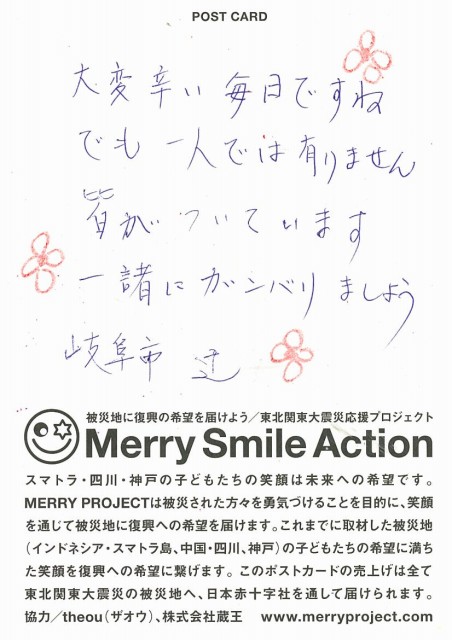 POST CARD
大変辛い毎日ですね
でも一人では有りません
皆がついています
一諸にガンバリましょう
岐阜市 辻
被災地に復興の希望を届けよう／東北関東大震災応援プロジェクト
Merry Smile Action
スマトラ・四川・神戸の子どもたちの笑顔は未来への希望です。
MERRY PROJECTは被災された方々を勇気づけることを目的に、笑顔
を通じて被災地に復興への希望を届けます。これまでに取材した被災地
（インドネシア・スマトラ島、中国・四川、神戸）の子どもたちの希望に満ち
た笑顔を復興への希望に繋げます。このポストカードの売上げは全て
東北関東大震災の被災地へ、日本赤十字社を通して届けられます。
協力／theou（ザオウ）、株式会社蔵王 www.merryproject.com